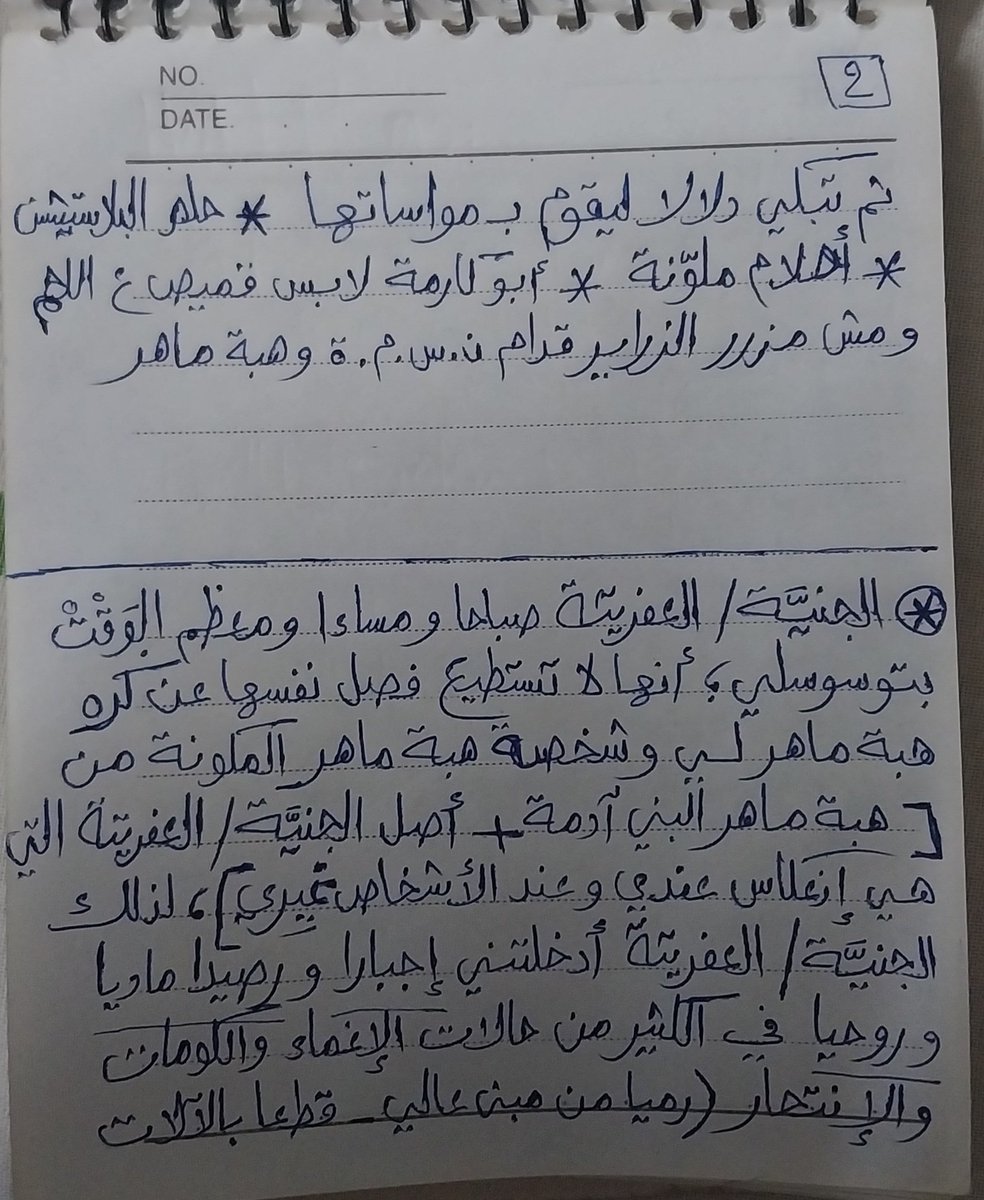 NO.
DATE.
2
ثم تبكي دلالا ليقوم بـ مواساتها * حلم البلاستيشن
* أحلام ملوّنة * أبو كارمة لابس قميص ع اللحم
ومش مزرر الزراير قدام ن.س.م.ة وهبة ماهر
* الجنيَّة/ العفريتة صباحا ومساءا ومعظم الوَقْتْ
بتوسوسلي؛ أنها لا تستطيع فصل نفسها عن كره
هبة ماهر لي وشخصة هبة ماهر المكونة من
[هبة ماهر البني آدمة + أصل الجنيَّة/ العفريتة التي
هي إنعكاس عندي وعند الأشخاص غيري]، لذلك
الجنيَّة/ العفريتة أدخلتني إجبارا ورصيدا ماديا
وروحيا في الكثير من حالات الإغماء والكومات
والإنتحار (رميا من مبنى عالي - قطعا بالآلات